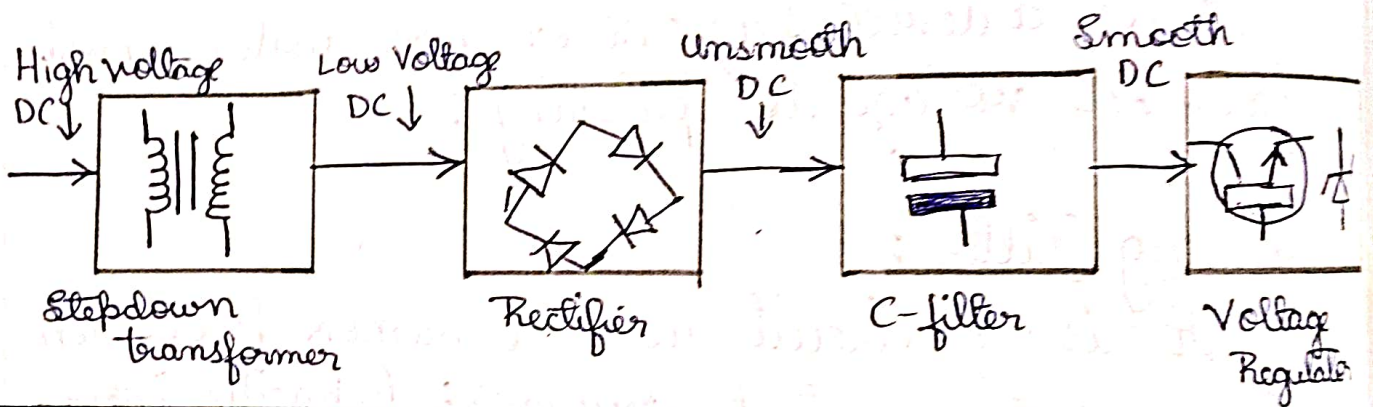 High voltage
DC
Low Voltage
DC
Unsmooth
DC
Smooth
DC
Stepdown
transformer
Rectifier
C-filter
Voltage
Regulator